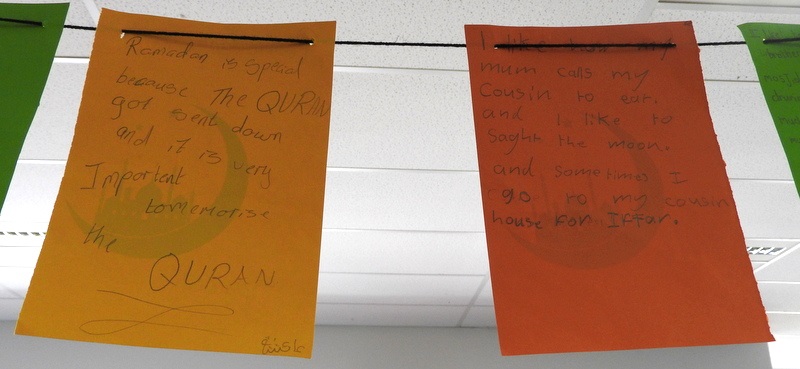 Ramadan is special
because The QURAN
got sent down
and it is very
Important
tomemorise
the
QURAN
I like how my
mum calls my
Cousin to eat.
and I like to
Saght the moon.
and sometimes I
go to my cousin
house for Iftar.